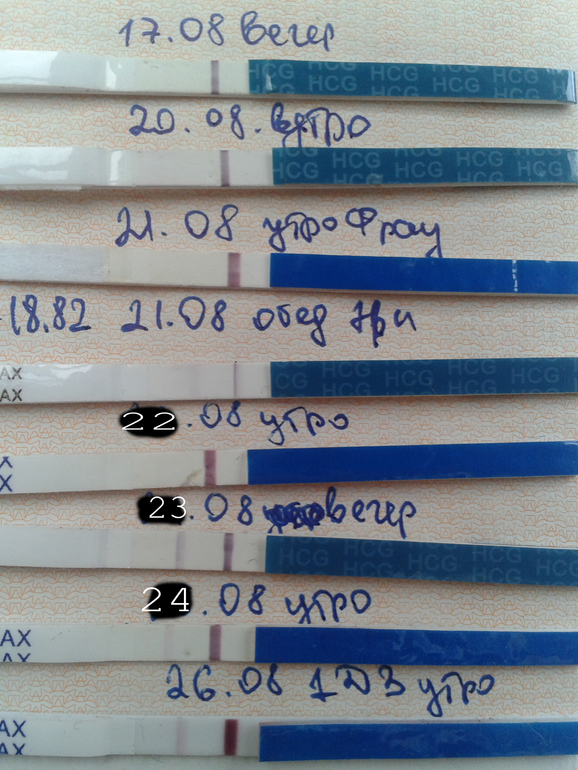 17.08 вечер
HCG HCG HCG HCG HCG HCG
20.08. утро
HCG HCG HCG HCG HCG
21.08 утро Фрау
-18.82 21.08 обед
AX HCG HCG HCG HCG HCG
AX
22.08 утро
X
X
23.08 вечер
HCG HCG HCG HCG HCG
24.08 утро
AX
AX
26.08 1ДЗ утро
AX
AX